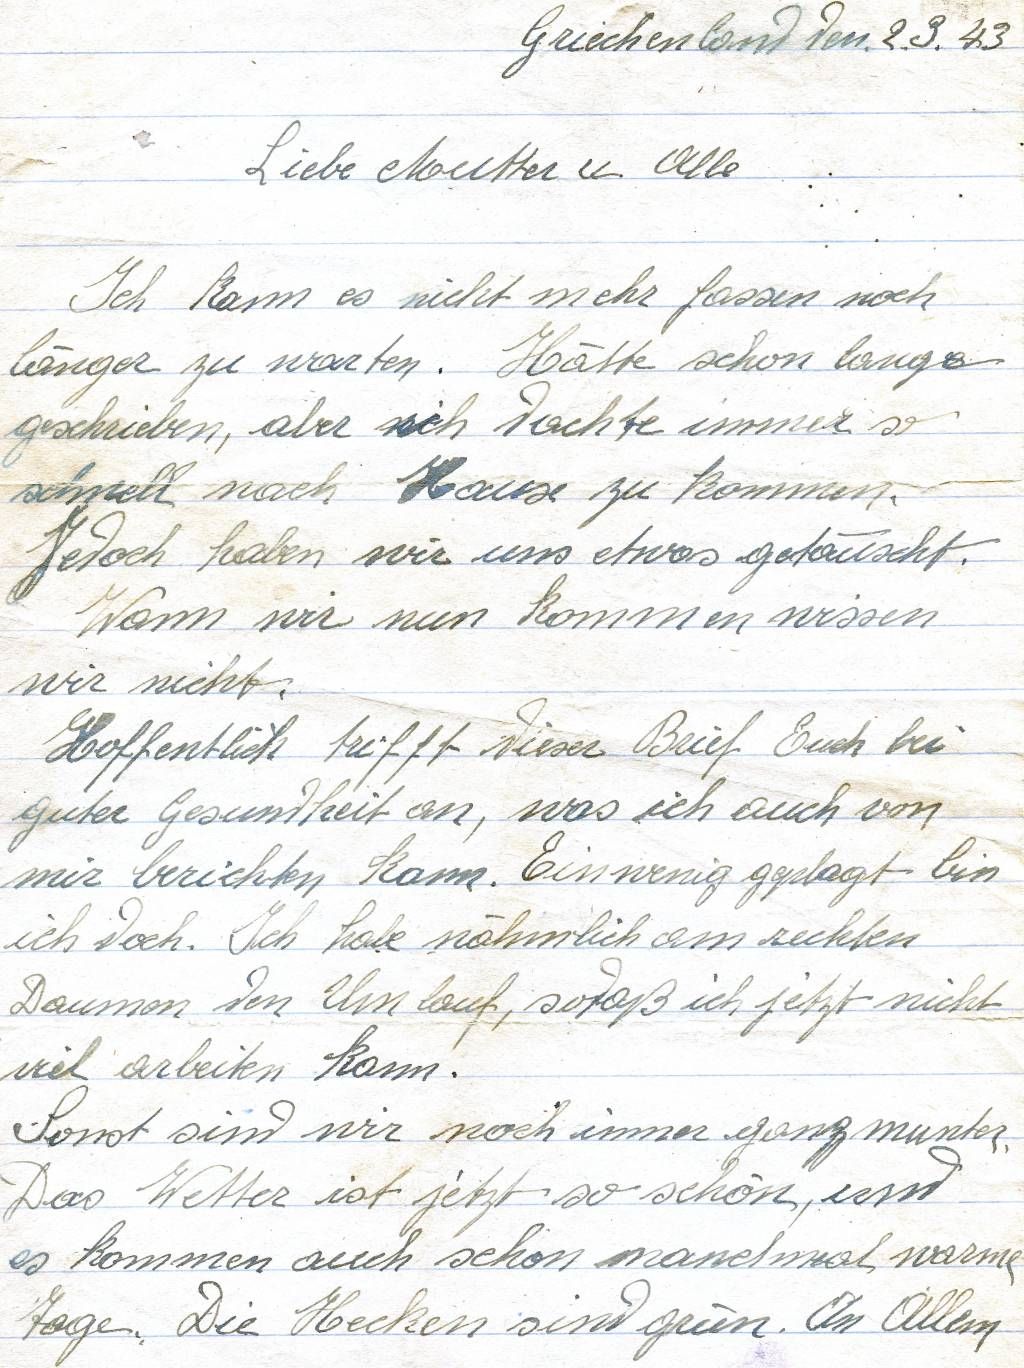 Griechenland den. 2.3.43
Liebe Mutter u Alle
Ich kann es nicht mehr fassen noch
länger zu warten. Hätte schon lange
geschrieben, aber ich dachte immer so
schnell nach Hause zu kommen.
Jedoch haben wir uns etwas getäuscht.
Wann wir nun kommen wissen
wir nicht.
Hoffentlich trifft dieser Brief Euch bei
guter Gesundheit an, was ich auch von
mir berichten kann. Ein wenig geplagt bin
ich doch. Ich habe nähmlich am rechten
Daumen den Umlauf, sodaß ich jetzt nicht
viel arbeiten kann.
Sonst sind wir noch immer ganz munter.
Das Wetter ist jetzt so schön, und
es kommen auch schon manchmal warme
Tage. Die Hecken sind grün. In Allem